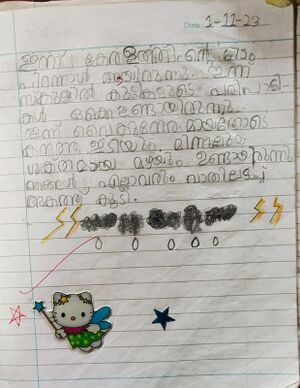 Date 1-11-23
ഇന്ന് കേരളത്തിന്റെ 67ാം
പിറന്നാൾ ആയിരുന്നു. ഇന്ന്
സ്കൂളിൽ കുട്ടികളുടെ പരിപാടി
കൾ ഒക്കെ ഉണ്ടായിരുന്നു.
ഇന്ന് വൈകുന്നേരമായതോടെ
നല്ല ഇടിയും. മിന്നലും.
ശക്തമായ മഴയും ഉണ്ടായിരുന്നു
ഞങ്ങൾ എല്ലാവരും വാതിലടച്ച്
അകത്തു കൂടി.